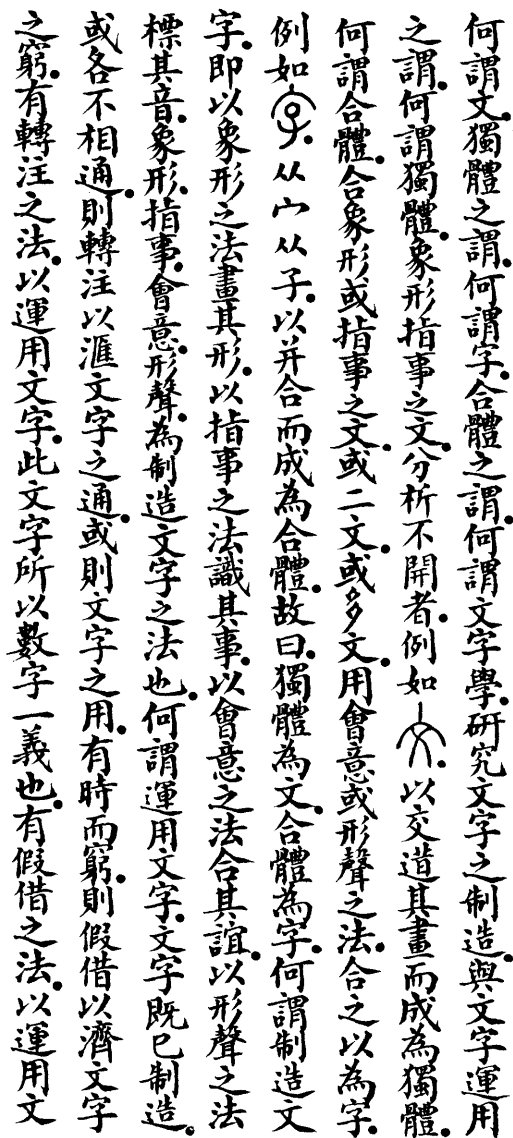 何謂文獨體之謂何謂字合體之謂何謂文字學研究文字之制造與文字運用
之謂何謂獨體象形指事之文分析不開者例如文以交道其畫而成為獨體
何謂合體合象形或指事之文或二文或多文用會意或形聲之法合之以為字
例如字从宀从子以并合而成為合體故曰獨體為文合體為字何謂制造文
字即以象形之法畫其形以指事之法識其事以會意之法合其誼以形聲之法
標其音象形指事會意形聲為制造文字之法也何謂運用文字文字既已制造
或各不相通則轉注以滙文字之通或則文字之用有時而窮則假借以濟文字
之窮有轉注之法以運用文字此文字所以數字一義也有假借之法以運用文